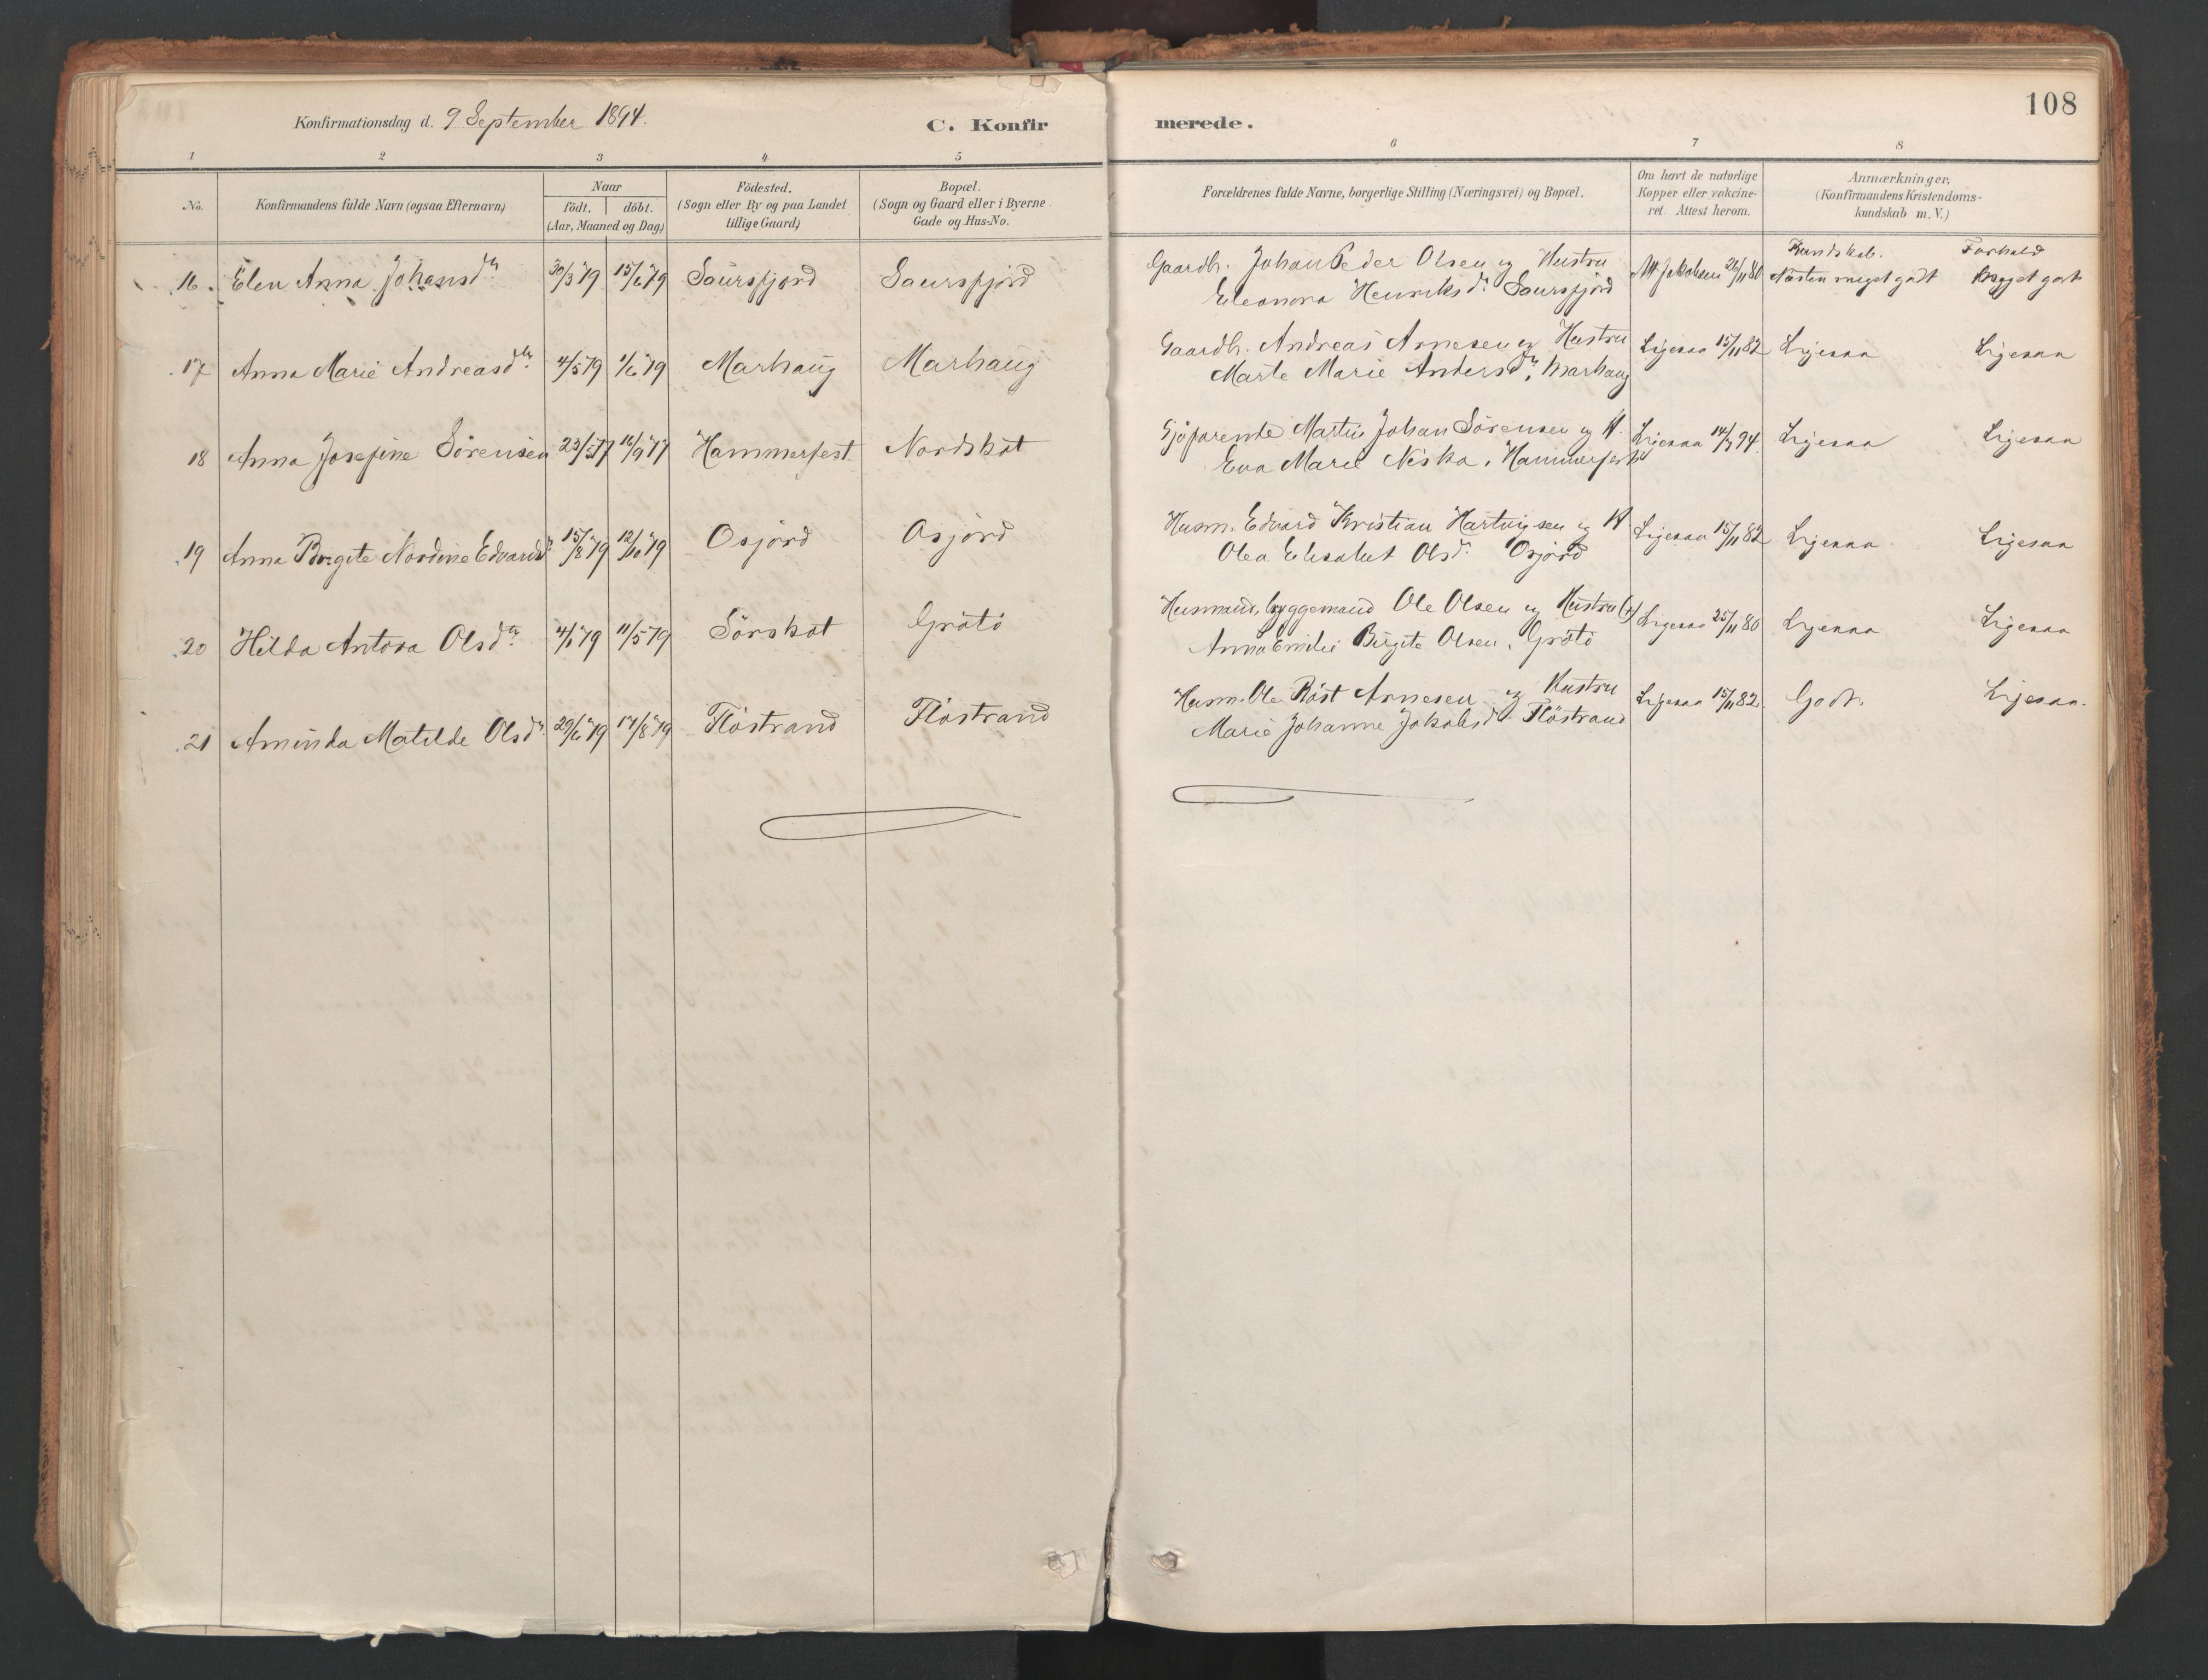 108
Konfirmationsdag d. 9 September 1894.
C. Konfirmerede.
1 2 3 4 5 6 7 8
No.
Konfirmandens fulde Navn (ogsaa Efternavn)
Naar
födt. döbt.
(Aar, Maaned og Dag)
Födested.
(Sogn eller By og paa Landet
tillige Gaard)
Bopæl.
(Sogn og Gaard eller i Byerne
Gade og Hus-No.
Forældrenes fulde Navne, borgerlige Stilling (Næringsvei) og Bopæl.
Om havt de naturlige
Kopper eller vakcine-
ret. Attest herom.
Anmærkninger,
(Konfirmandens Kristendoms-
kundskab m. V.)
Kundskab. Forhold
16. Elen Anna Johansdtr 30/3 79 15/6 79 Saursfjord Saursfjord Gaardb. Johan Peder Olsen og Hustru
Eleonora Henriksdr. Saursfjord
Jakobsen 26/11 80 Næsten meget godt Meget godt
17 Anna Marie Andreasdtr 4/5 79 1/6 79 Marhaug Marhaug Gaardb. Andreas Arnesen og Hustru
Marte Marie Andersdr, Marhaug
Ligesaa 15/11 82 Ligesaa Ligesaa
18 Anna Josefine Sörensen 23/5 77 16/9 77 Hammerfest Nordskot Sjöfarende Martin Johan Sörensen og H.
Eva Marie Niska, Hammerfest
Ligesaa 14/7 94 Ligesaa Ligesaa
19 Anna Birgite Nordine Edvardsdr 15/8 79 12/10 79 Osjord Osjord Husm. Edvard Kristian Hartvigsen og H.
Olea Elisabet Olsdr. Osjord
Ligesaa 15/11 82 Ligesaa Ligesaa
20 Hilda Antora Olsdtr 4/1 79 11/5 79 Sörskot Grötö Husmand, byggemand Ole Olsen og Hustru (+)
Anna Emilie Birgite Olsen, Grötö
Ligesaa 25/11 80 Ligesaa Ligesaa
21 Aminda Matilde Olsdr. 29/6 79 17/8 79 Flöstrand Flöstrand Husm. Ole Röst Arnesen og Hustru
Marie Johanne Jakobsdr. Flöstrand
Ligesaa 15/11 82. Godt. Ligesaa.